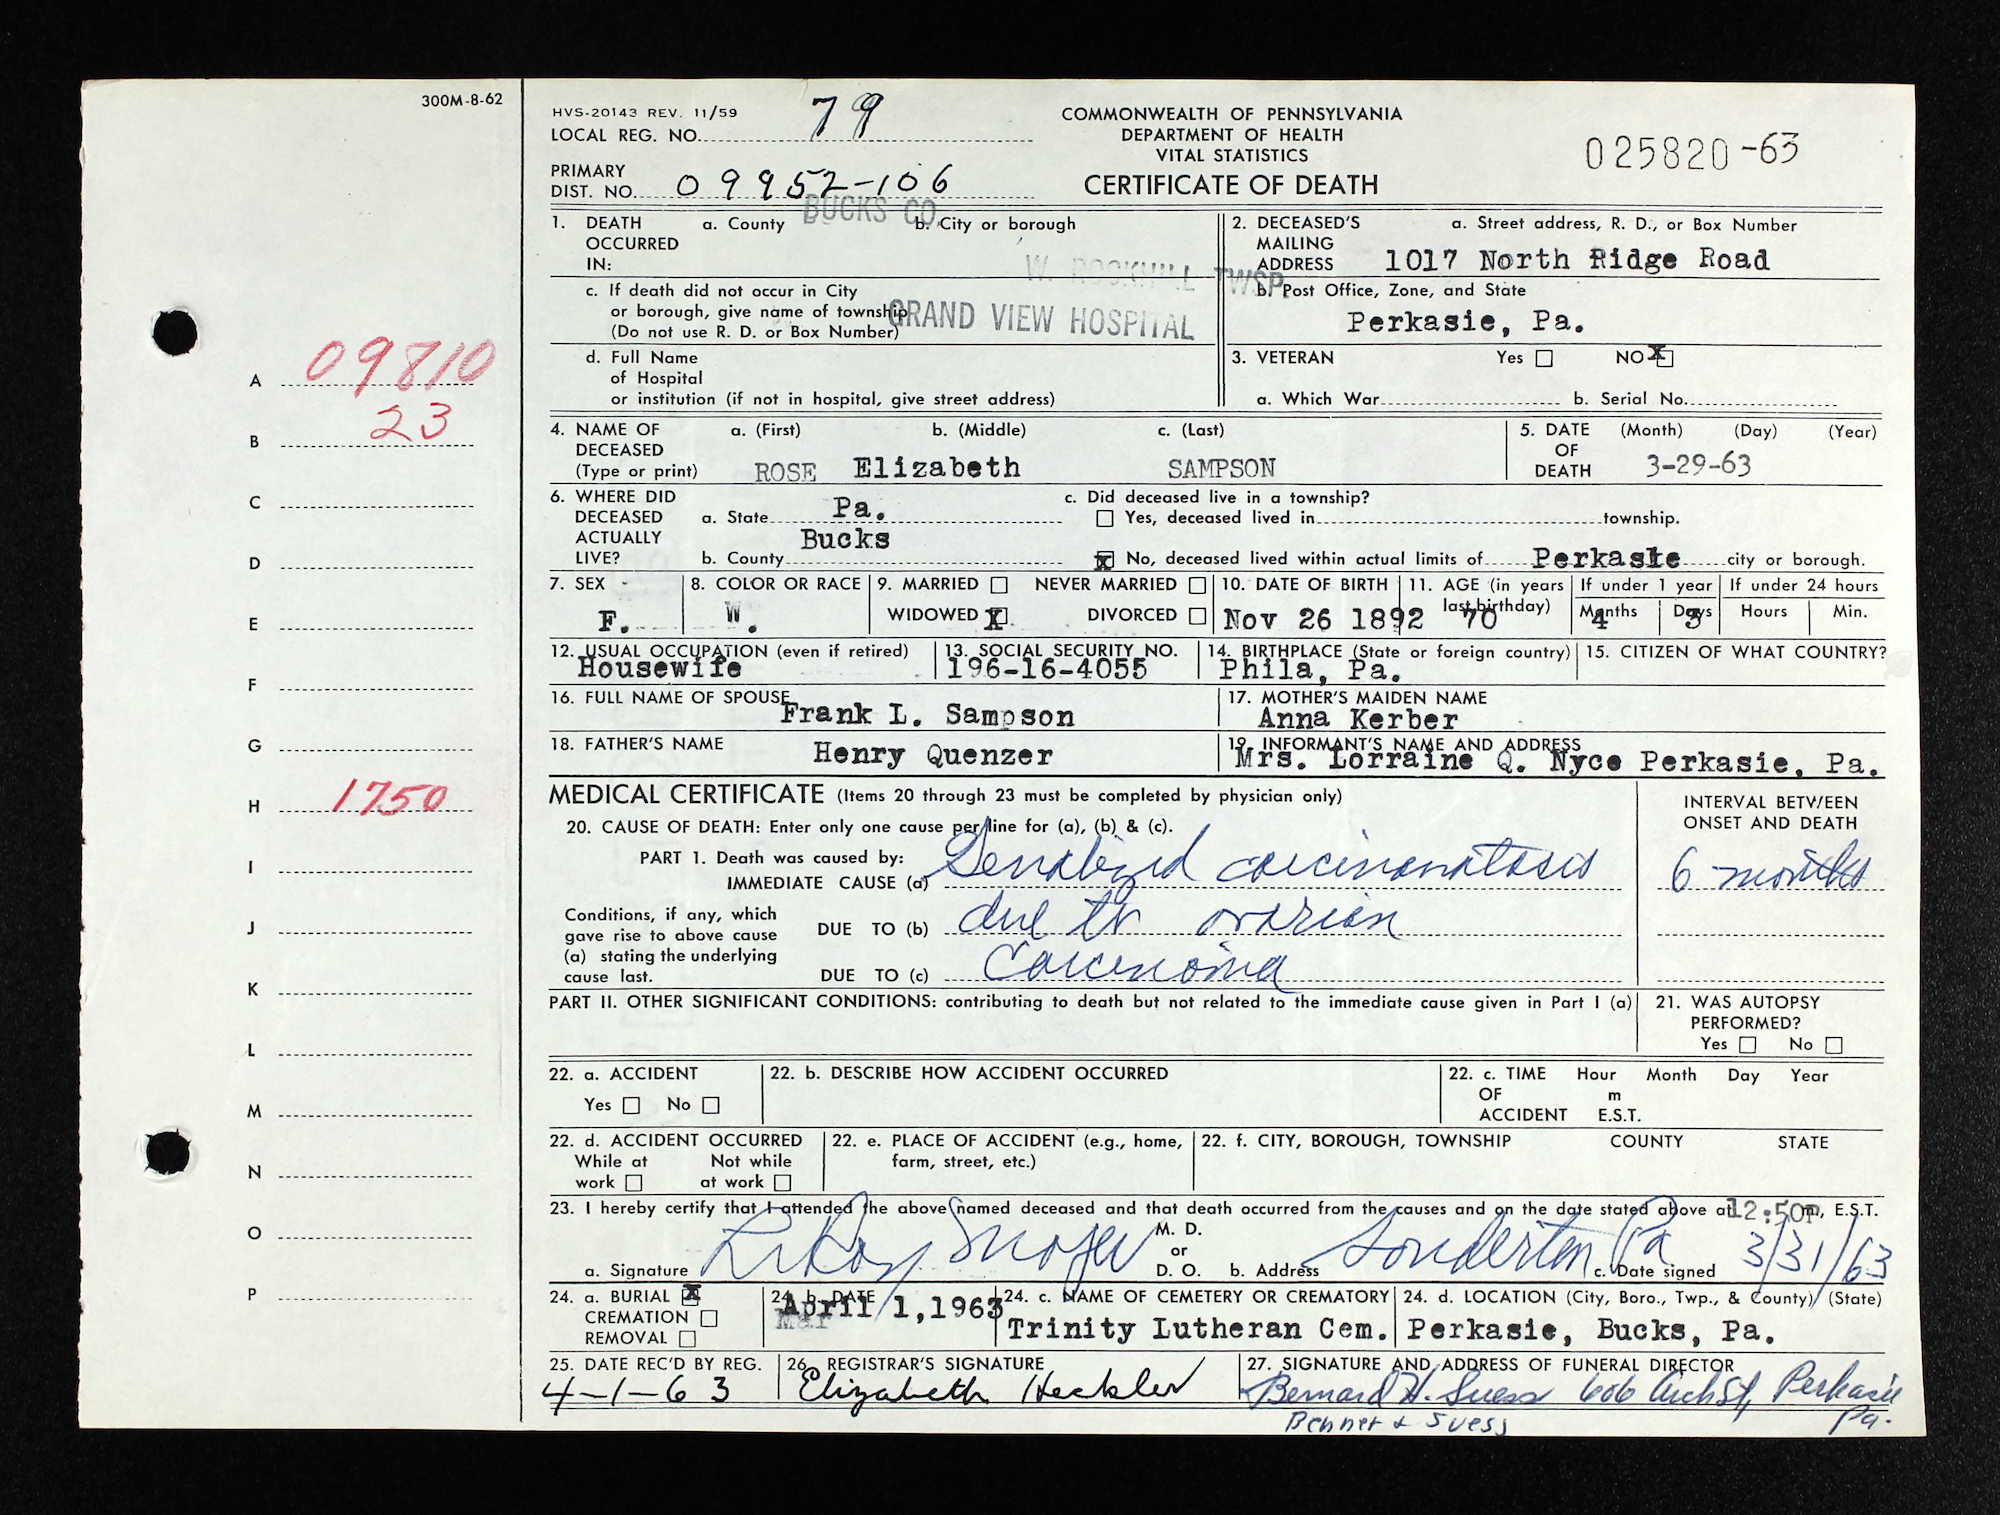 300M-8-62
HVS-20143 REV. 11/59
LOCAL REG. NO. 79
COMMONWEALTH OF PENNSYLVANIA
DEPARTMENT OF HEALTH
VITAL STATISTICS
CERTIFICATE OF DEATH
025820-63
PRIMARY
DIST. NO. 09952-106
1. DEATH OCCURRED IN:
a. County BUCKS CO.
b. City or borough
W. ROCKHILL TWSP.
c. If death did not occur in City
or borough, give name of township
(Do not use R. D. or Box Number)
GRAND VIEW HOSPITAL
d. Full Name
of Hospital
or institution (if not in hospital, give street address)
2. DECEASED'S MAILING ADDRESS
a. Street address, R. D., or Box Number
1017 North Ridge Road
b. Post Office, Zone, and State
Perkasie, Pa.
3. VETERAN Yes NO X
a. Which War b. Serial No.
4. NAME OF DECEASED (Type or print)
a. (First) b. (Middle) c. (Last)
ROSE Elizabeth SAMPSON
5. DATE OF DEATH (Month) (Day) (Year)
3-29-63
6. WHERE DID DECEASED ACTUALLY LIVE?
a. State Pa.
b. County Bucks
c. Did deceased live in a township?
Yes, deceased lived in township.
X No, deceased lived within actual limits of Perkasie city or borough.
7. SEX F.
8. COLOR OR RACE W.
9. MARRIED NEVER MARRIED
WIDOWED X DIVORCED
10. DATE OF BIRTH Nov 26 1892
11. AGE (in years last birthday) 70
If under 1 year Months 4 Days 3
If under 24 hours Hours Min.
12. USUAL OCCUPATION (even if retired)
Housewife
13. SOCIAL SECURITY NO.
196-16-4055
14. BIRTHPLACE (State or foreign country)
Phila, Pa.
15. CITIZEN OF WHAT COUNTRY?
16. FULL NAME OF SPOUSE
Frank L. Sampson
17. MOTHER'S MAIDEN NAME
Anna Kerber
18. FATHER'S NAME
Henry Quenzer
19. INFORMANT'S NAME AND ADDRESS
Mrs. Lorraine Q. Nyce Perkasie, Pa.
MEDICAL CERTIFICATE (Items 20 through 23 must be completed by physician only)
20. CAUSE OF DEATH: Enter only one cause per line for (a), (b) & (c).
INTERVAL BETWEEN
ONSET AND DEATH
PART 1. Death was caused by:
IMMEDIATE CAUSE (a) carcinomatosis
6 months
Conditions, if any, which
gave rise to above cause
(a) stating the underlying
cause last.
DUE TO (b) due to ovarian
DUE TO (c) Carcinoma
PART II. OTHER SIGNIFICANT CONDITIONS: contributing to death but not related to the immediate cause given in Part I (a)
21. WAS AUTOPSY
PERFORMED?
Yes No
22. a. ACCIDENT
Yes No
22. b. DESCRIBE HOW ACCIDENT OCCURRED
22. c. TIME OF ACCIDENT Hour Month Day Year
m
E.S.T.
22. d. ACCIDENT OCCURRED
While at work Not while at work
22. e. PLACE OF ACCIDENT (e.g., home,
farm, street, etc.)
22. f. CITY, BOROUGH, TOWNSHIP COUNTY STATE
23. I hereby certify that I attended the above named deceased and that death occurred from the causes and on the date stated above at 12:50P m, E.S.T.
a. Signature
M. D.
or
D. O.
b. Address Souderton Pa
c. Date signed 3/31/63
24. a. BURIAL X
CREMATION
REMOVAL
24. b. DATE
Mar
April 1, 1963
24. c. NAME OF CEMETERY OR CREMATORY
Trinity Lutheran Cem.
24. d. LOCATION (City, Boro., Twp., & County) (State)
Perkasie, Bucks, Pa.
25. DATE REC'D BY REG.
4-1-63
26. REGISTRAR'S SIGNATURE
Elizabeth Heckler
27. SIGNATURE AND ADDRESS OF FUNERAL DIRECTOR
Bernard H. Suess 606 Arch St, Perkasie
Pa.
Benner & Suess
A 09810
B 23
C
D
E
F
G
H 1750
I
J
K
L
M
N
O
P